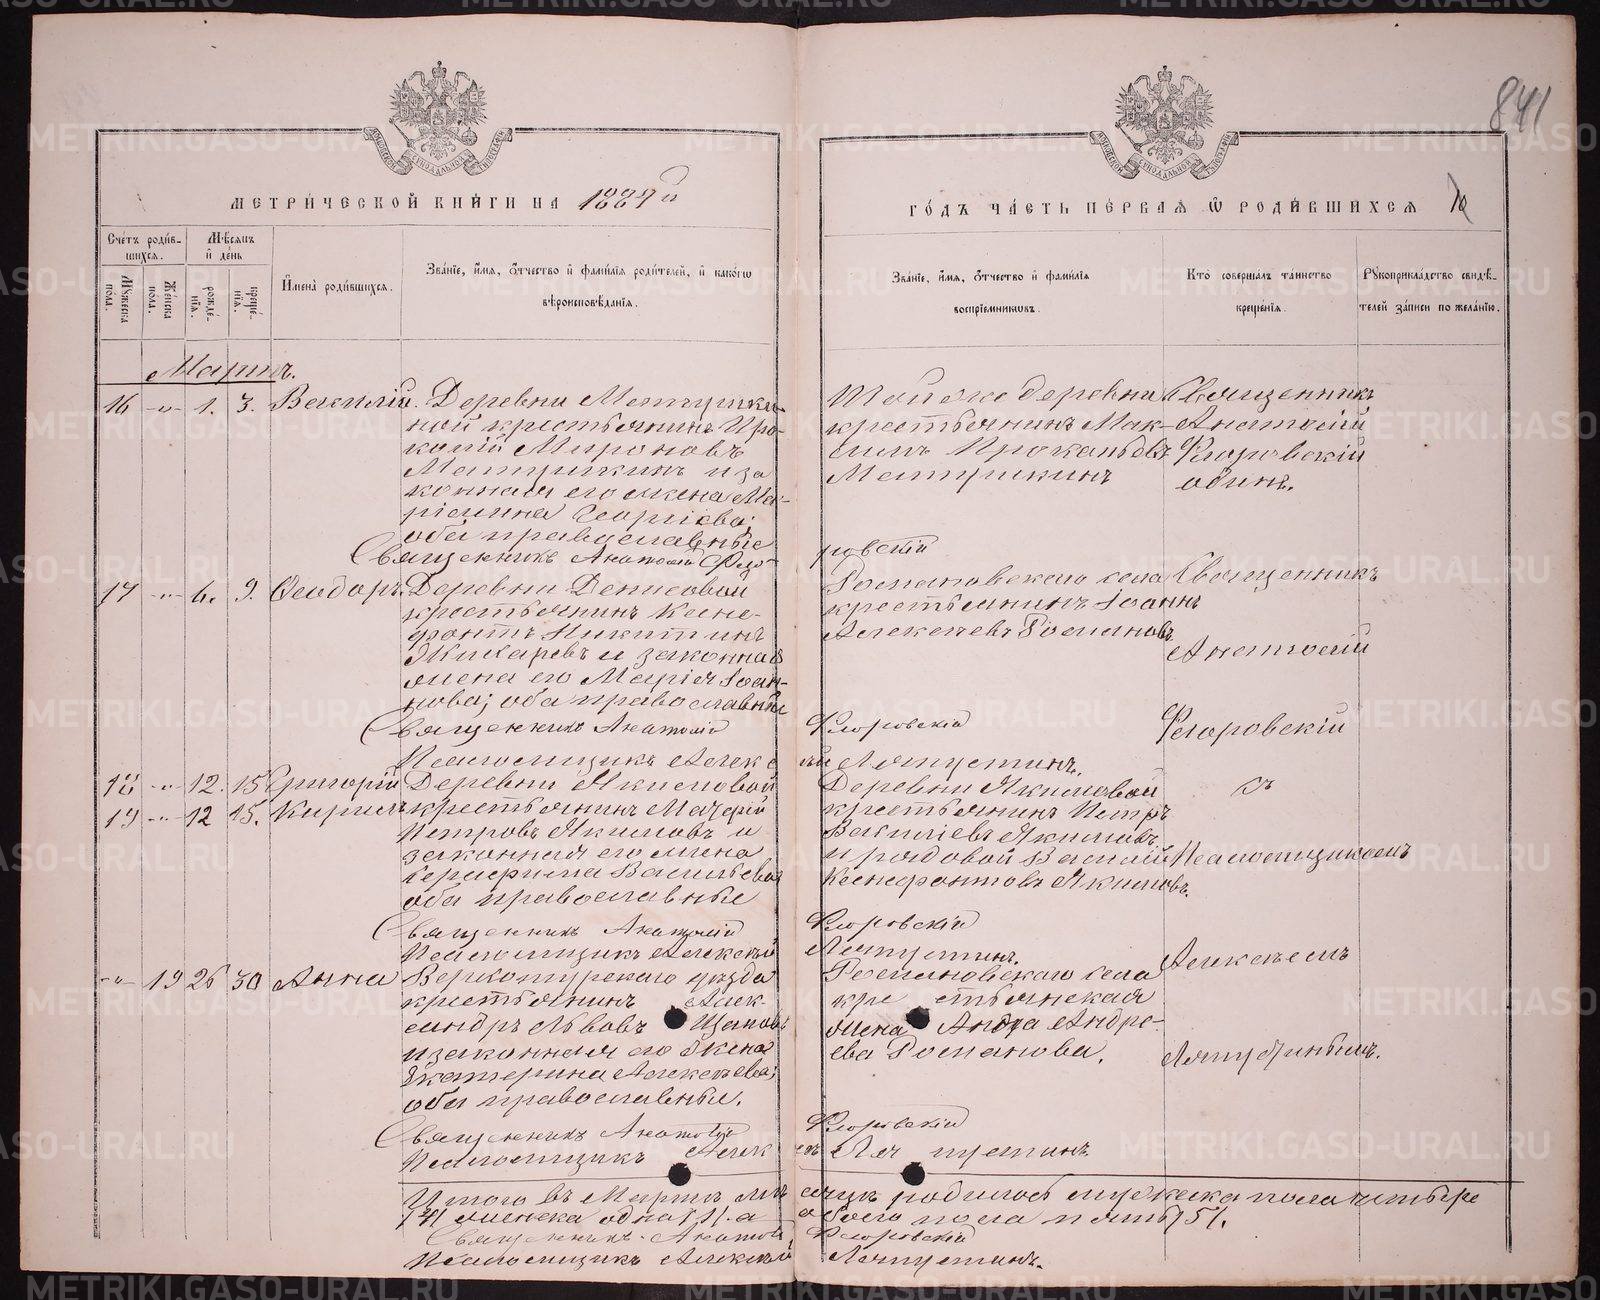 841
МЕТРИ́ЧЕСКОЙ КНИ́ГИ НА 1887й
ГО́ДЪ ЧА́СТЬ ПЕ́РВАѦ Ѿ РОДИ́ВШИХСѦ
Сче́тъ роди́в-
шихся.
Мѣ́сѧцъ
и҆ де́нь
Мꙋжеска по́ла.
Же́нска по́ла.
рожде́-
нїѧ.
креще́-
нїѧ.
И҆мена̀ роди́вшихсѧ.
Зва́нїе, и҆́мѧ, ѻ҆́тчество и҆ фами́лїѧ роди́телей, и҆ како́гѡ
вѣроисповѣ́данїѧ.
Зва́нїе, и҆́мѧ, ѻ҆́тчество и҆ фами́лїѧ
воспрїе́мникѡвъ.
Кто̀ соверша́лъ та́инство
креще́нїѧ.
Рꙋкоприкла́дство свидѣ́-
телей за́писи по жела́нїю.
Мартъ.
16 -"- 1. 3. Василій. Деревни Матушки-
ной крестьянинъ Про-
копій Мироновъ
Матушкинъ и за
конная его жена Ма-
ріамна Георгіева;
оба православные
Той же деревни
крестьянинъ Мак-
симъ Прокопьевъ
Матушкинъ
Священникъ
Анатолій
Флоровскій
одинъ.
Священникъ Анатолій Фло
ровскій
17 -"- 6. 9. Ѳеодоръ. Деревни Денисовой
крестьянинъ Ксено-
фонтъ Никитинъ
Жихаревъ и законная
жена его Марія Іоан-
нова; оба православные
Романовскаго села
крестьянинъ Іоаннъ
Алексѣевъ Романовъ
Священникъ
Анатолій
Флоровскій
Священникъ Анатолій Флоровскій
Псаломщикъ Алексѣй Ляпустинъ.
18 -"- 12. 15 Григорій Деревни Якимовой
19 -"- 12 15. Кирилъ крестьянинъ
Петровъ Якимовъ и
законная его жена
Васильева
оба православные
Деревни Якимовой
крестьянинъ Петръ
Василіевъ Якимовъ
и рядовой Василій
Ксенофонтовъ Якимовъ.
съ
Псаломщикомъ
Священникъ Анатолій Флоровскій
Псаломщикъ Алексѣй Ляпустинъ.
-"- 19 26 30 Анна Верхотурскаго уѣзда
крестьянинъ Алек
сандръ Львовъ
и законная его жена
Екатерина Алексѣева;
оба православные.
Романовскаго села
крестьянская
жена Анна Андре-
ева Романова.
Алексѣемъ
Ляпустинымъ.
Священникъ Анатолій Флоровскій
Псаломщикъ Алексѣй Ляпустинъ
Итого въ Мартѣ мѣсяцѣ родилось мужеска пола четыре
/4/ женска одна /1/. а обоего пола пять /5/.
Священникъ Анатолій Флоровскій
Псаломщикъ Алексѣй Ляпустинъ.
METRIKI.GASO-URAL.RU